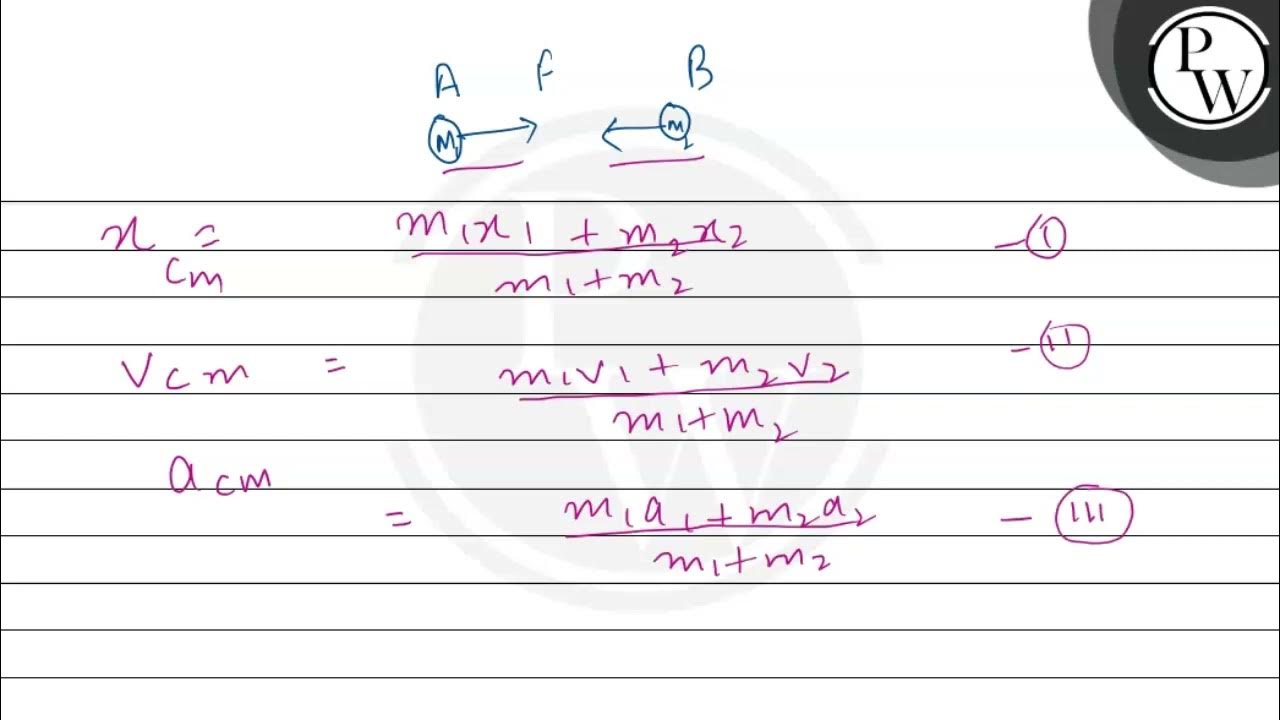 A F B
m₁ m₂
PW
x_cm = (m₁x₁ + m₂x₂)/(m₁+m₂) - (I)
v_cm = (m₁v₁ + m₂v₂)/(m₁+m₂) - (II)
a_cm = (m₁a₁ + m₂a₂)/(m₁+m₂) - (III)